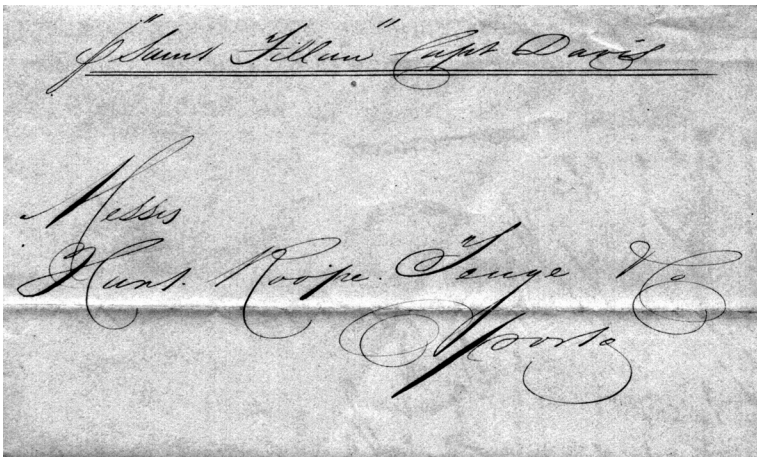 p "Saint Fillan" Capt Davis
Messrs
Hunt. Roope. Teage & Co
Oporto